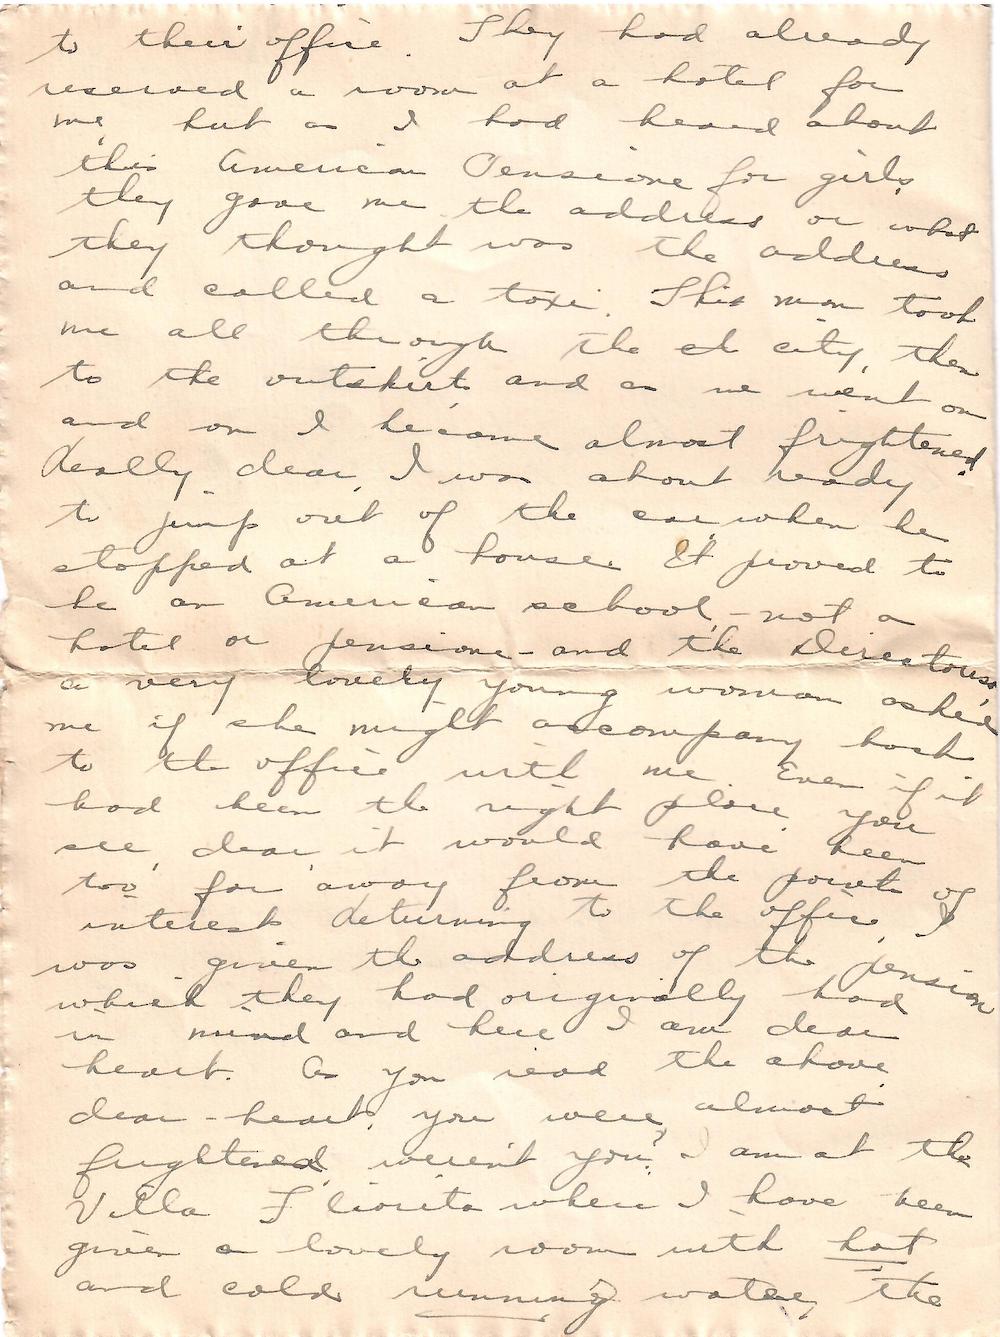 to their office. They had already
reserved a room at a hotel for
me, but as I had heard about
this American Pensione for girls,
they gave me the address or what
they thought was the address
and called a taxi. This man took
me all through the city, then
to the outskirts, and as we went on
and on I became almost frightened.
Really dear, I was about ready
to jump out of the car, when he
stopped at a house. It proved to
be an American school, - not a
hotel or pensione - and the Directress,
a very lovely young woman asked
me if she might accompany back
to the office with me. Even if it
had been the right place you
see, dear, it would have been
too far away from the points of
interest. Returning to the office, I
was given the address of the pension
which they had originally had
in mind and here I am dear
heart. As you read the above
dear-heart, you were almost
frightened, weren't you? I am at the
Villa Fliorita where I have been
given a lovely room with hot
and cold running water, the